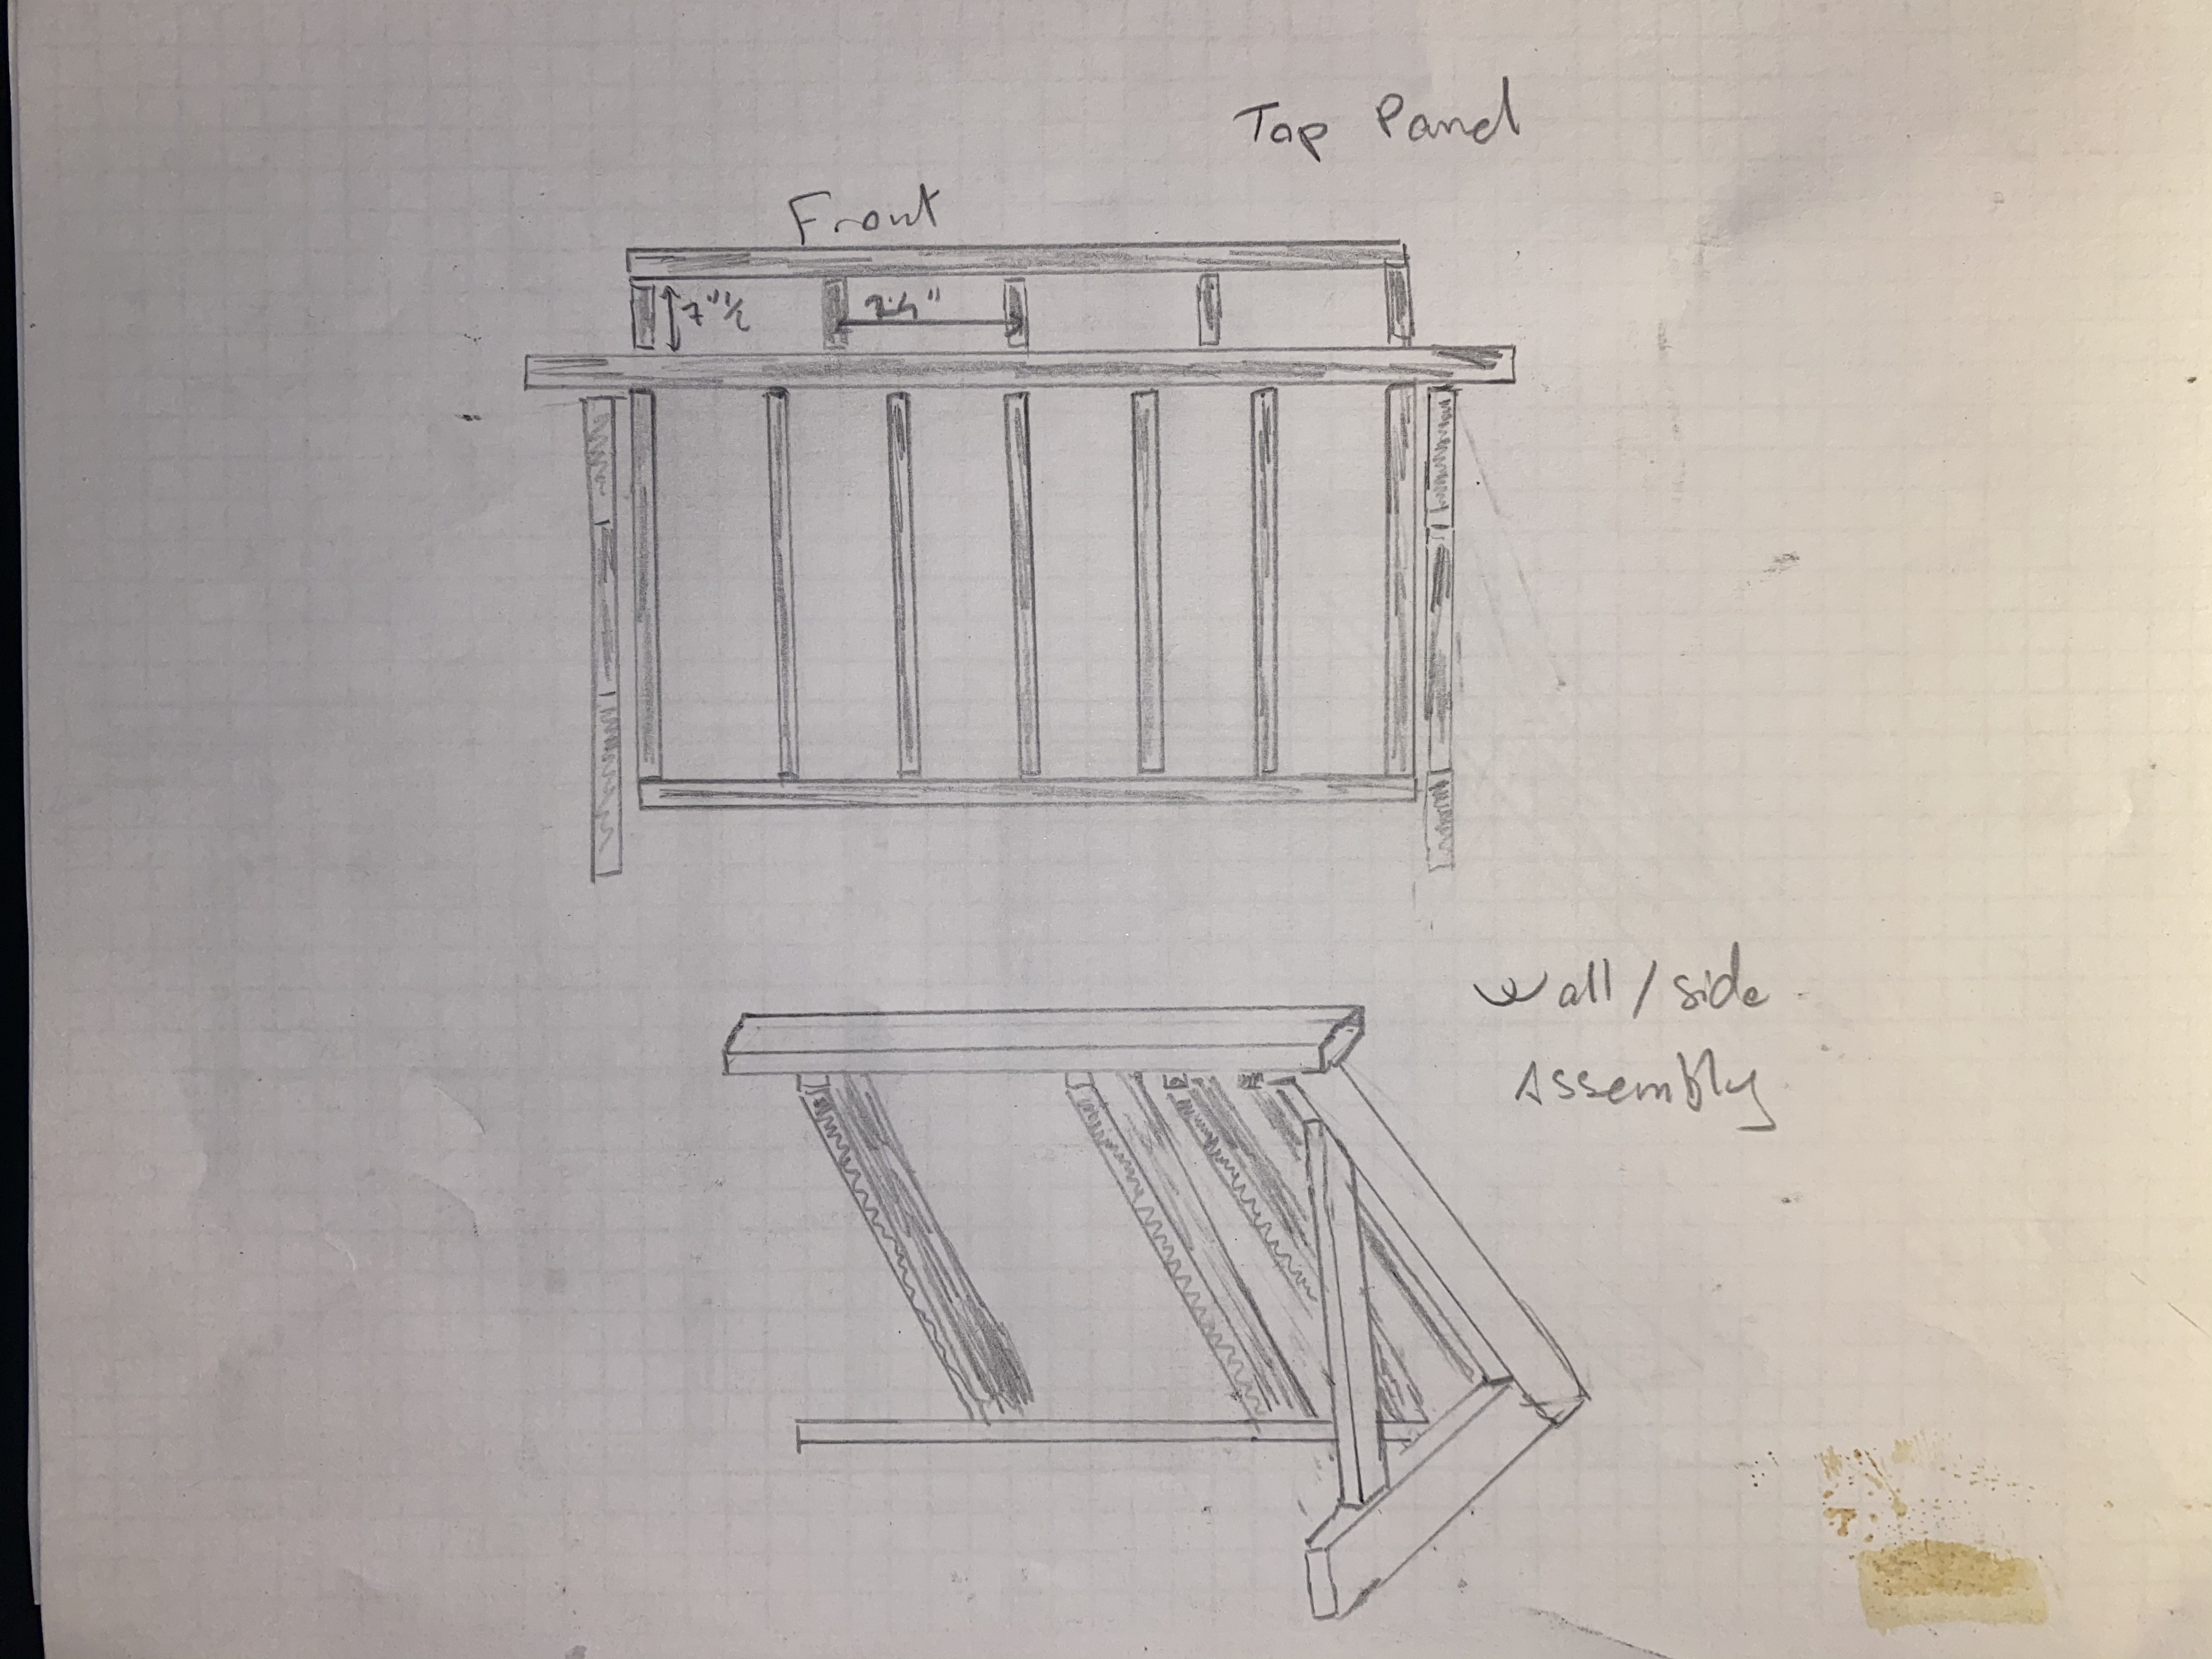 Top Panel
Front
7"1/2
24"
Wall/side
Assembly